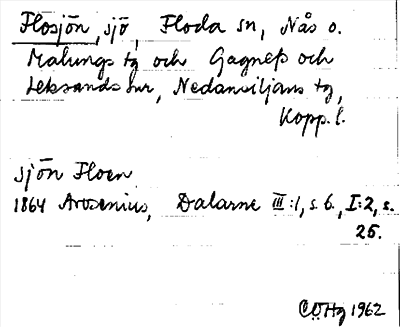 Flosjön, sjö, Floda sn, Nås o.
Malungs tg och Gagnefs och
Leksands tur, Nedansiljans tg,
Kopp. l.
sjön Floen
1864 Arosenius, Dalarne III:1, s. 6., I:2, s.
25.
CÖHg 1962